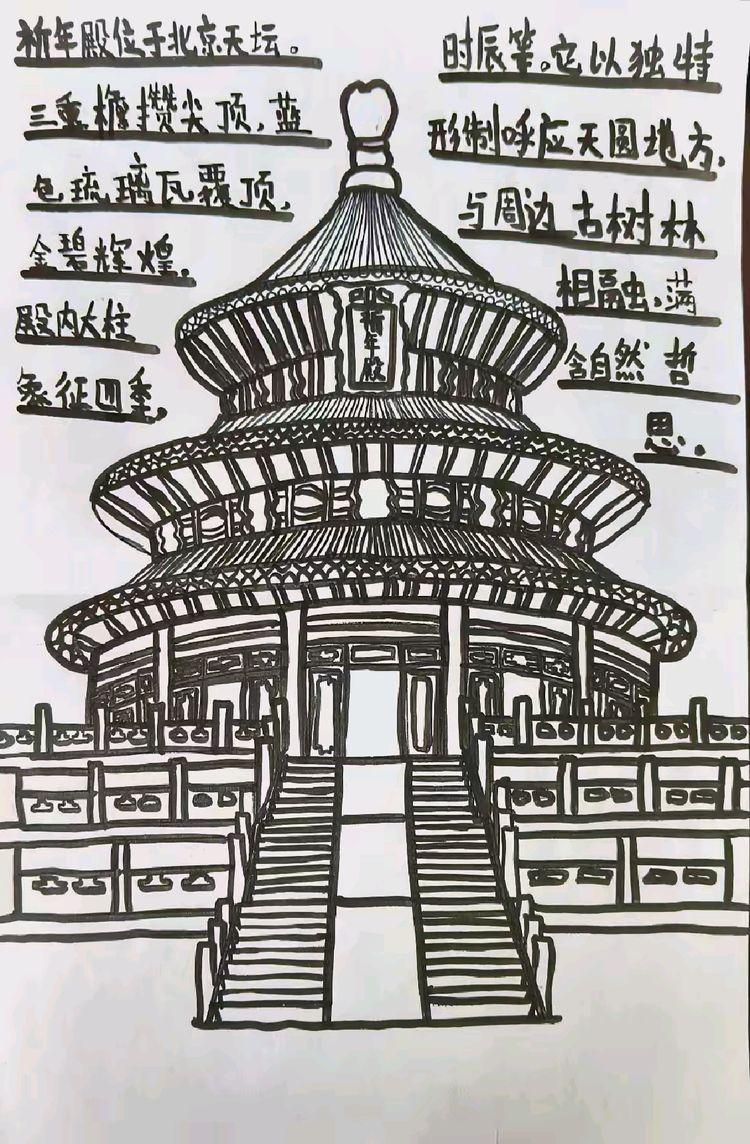 祈年殿位于北京天坛。
三重檐攒尖顶，蓝
色琉璃瓦覆顶，
金碧辉煌，
殿内大柱
象征四季，
时辰等。它以独特
形制呼应天圆地方，
与周边古树林
相融，满
含自然哲
思。
祈年殿